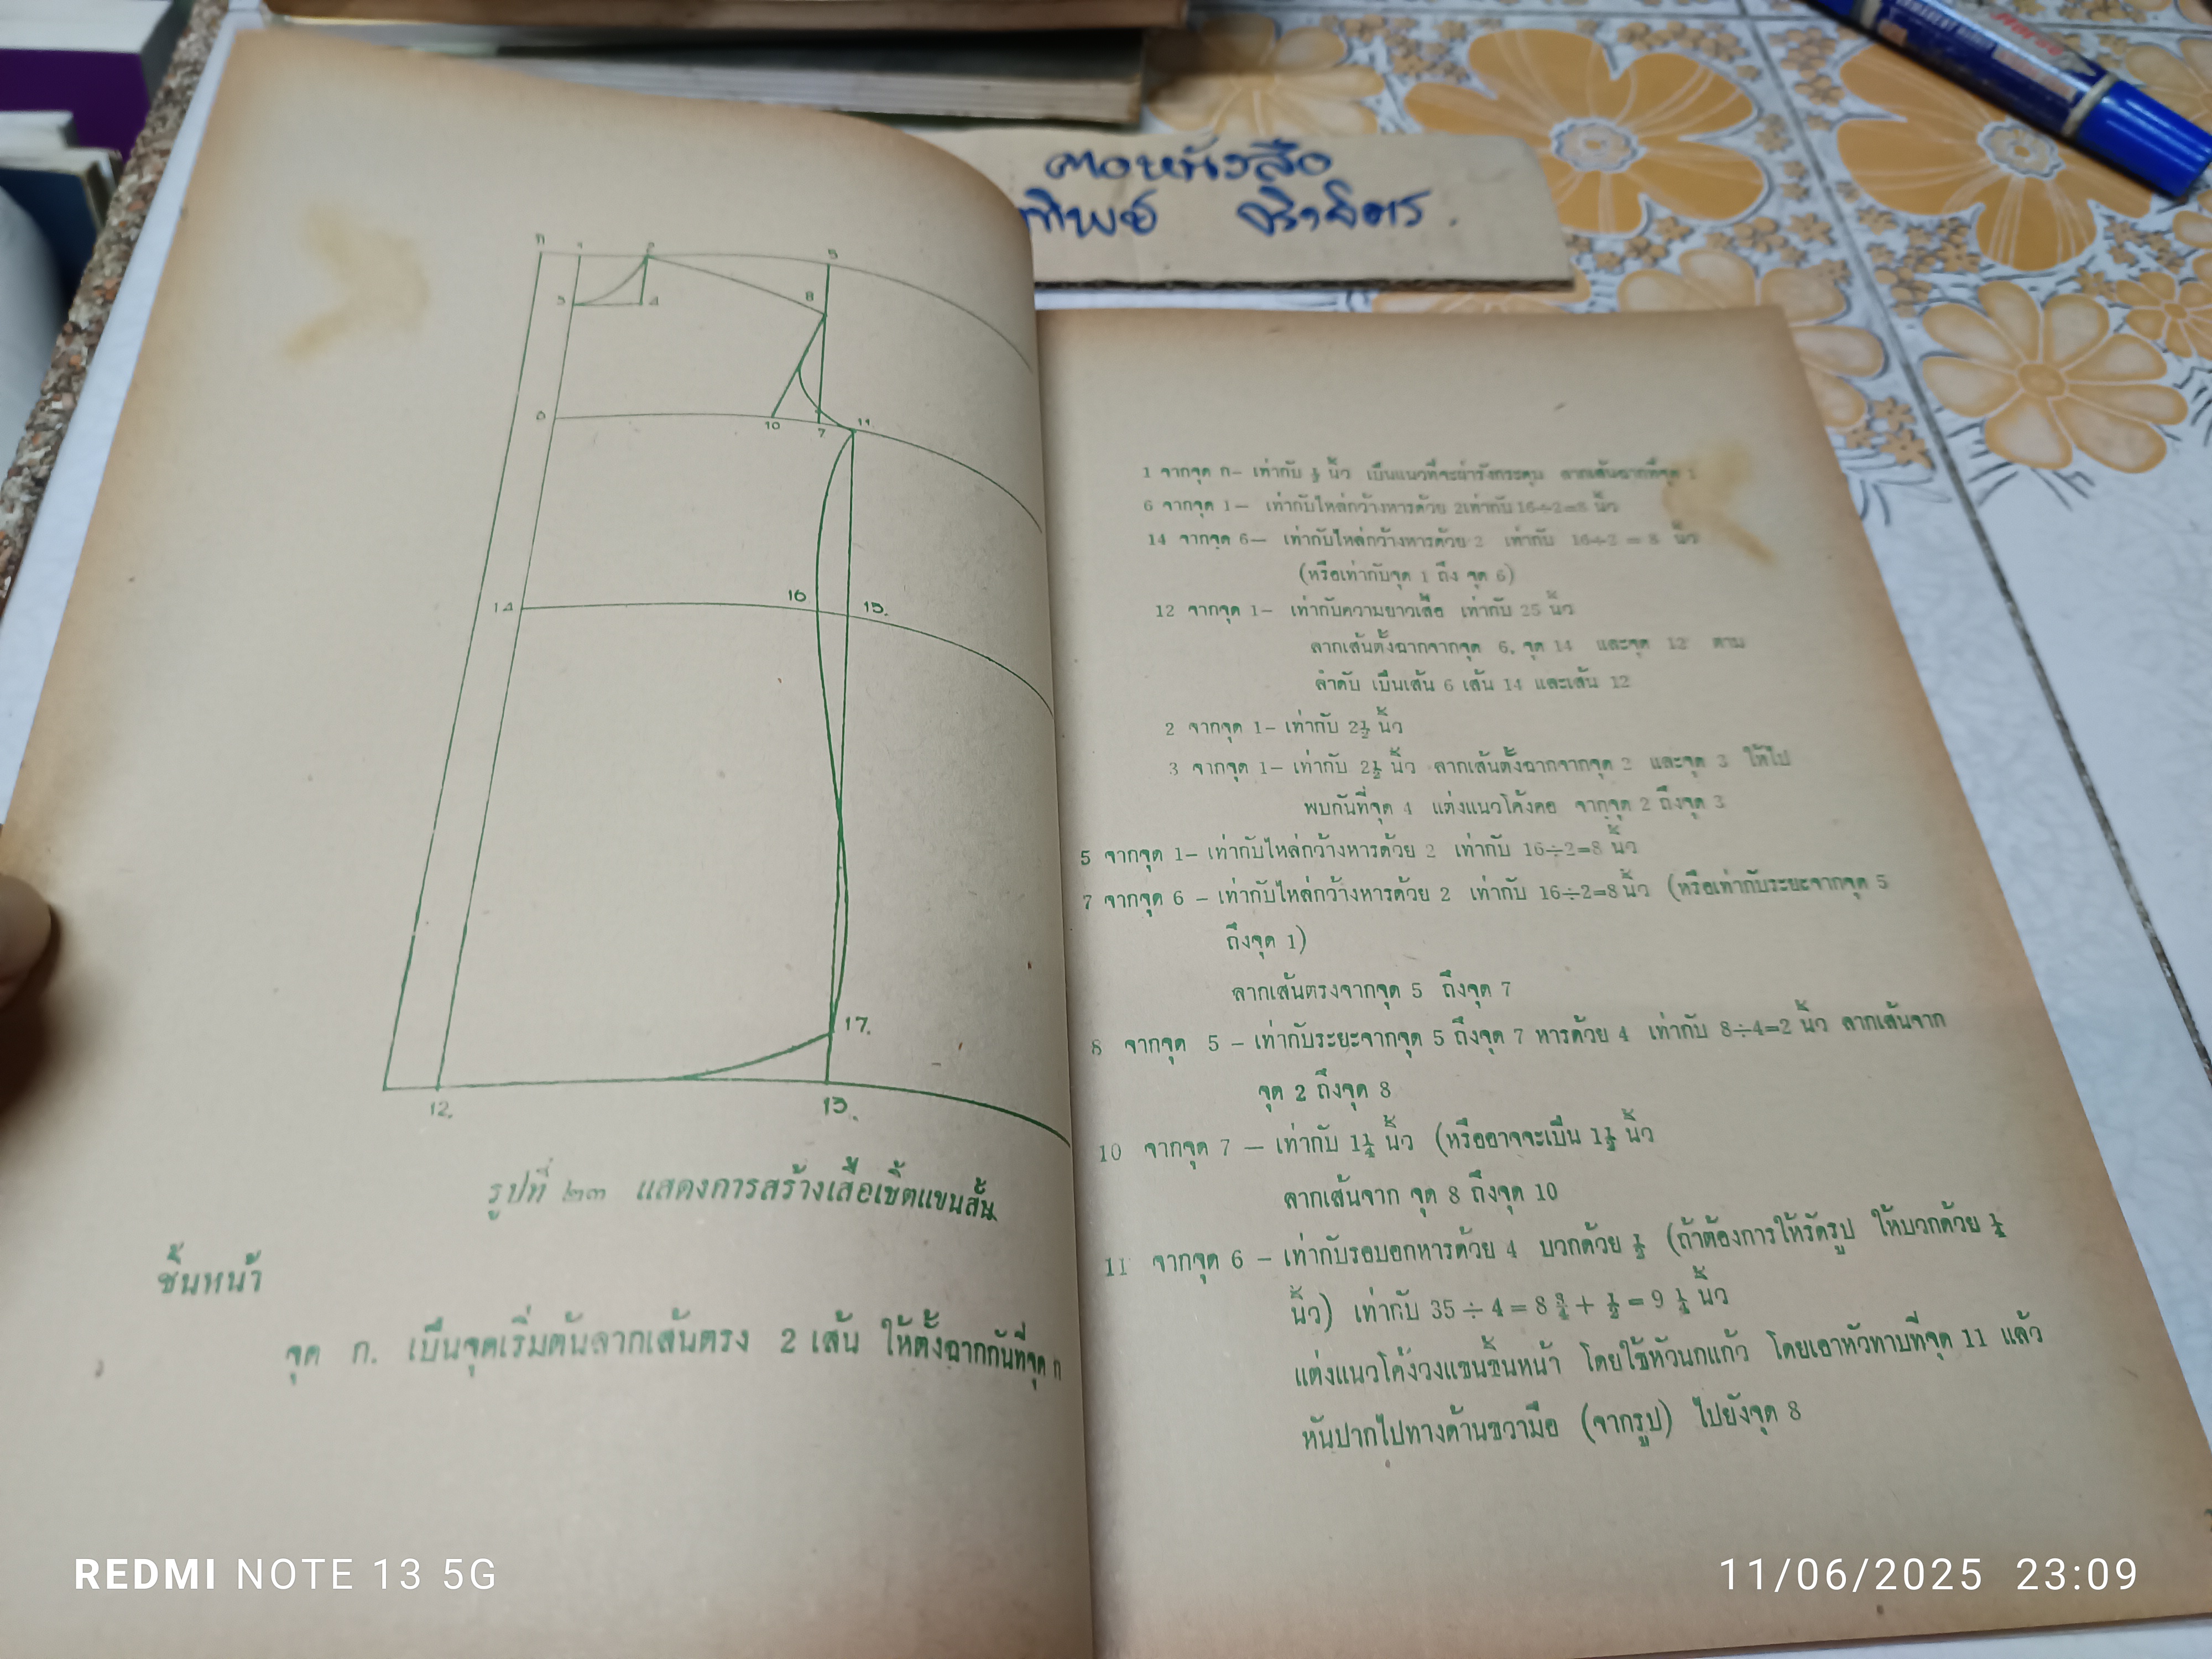 ฅอหนังสือ
ทิพย์
ก
1
2
5
3
4
8
6
10
7
11
14
16
15.
17.
12.
13.
รูปที่ ๒๓ แสดงการสร้างเสื้อเชิ้ตแขนสั้น
ชิ้นหน้า
จุด ก. เป็นจุดเริ่มต้นลากเส้นตรง 2 เส้น ให้ตั้งฉากกันที่จุด ก
1 จากจุด ก– เท่ากับ ½ นิ้ว เป็นแนวที่จะผ่ารังกระดุม ลากเส้นฉากที่จุด 1
6 จากจุด 1– เท่ากับไหล่กว้างหารด้วย 2เท่ากับ 16÷2=8 นิ้ว
14 จากจุด 6– เท่ากับไหล่กว้างหารด้วย 2 เท่ากับ 16÷2 = 8 นิ้ว
(หรือเท่ากับจุด 1 ถึง จุด 6)
12 จากจุด 1– เท่ากับความยาวเสื้อ เท่ากับ 25 นิ้ว
ลากเส้นตั้งฉากจากจุด 6. จุด 14 และจุด 12 ตาม
ลำดับ เป็นเส้น 6 เส้น 14 และเส้น 12
2 จากจุด 1– เท่ากับ 2½ นิ้ว
3 จากจุด 1– เท่ากับ 2½ นิ้ว ลากเส้นตั้งฉากจากจุด 2 และจุด 3 ให้ไป
พบกันที่จุด 4 แต่งแนวโค้งคอ จากจุด 2 ถึงจุด 3
5 จากจุด 1– เท่ากับไหล่กว้างหารด้วย 2 เท่ากับ 16÷2=8 นิ้ว
7 จากจุด 6 – เท่ากับไหล่กว้างหารด้วย 2 เท่ากับ 16÷2=8 นิ้ว (หรือเท่ากับระยะจากจุด 5
ถึงจุด 1)
ลากเส้นตรงจากจุด 5 ถึงจุด 7
8 จากจุด 5 – เท่ากับระยะจากจุด 5 ถึงจุด 7 หารด้วย 4 เท่ากับ 8÷4=2 นิ้ว ลากเส้นจาก
จุด 2 ถึงจุด 8
10 จากจุด 7 – เท่ากับ 1¼ นิ้ว (หรืออาจจะเป็น 1½ นิ้ว
ลากเส้นจาก จุด 8 ถึงจุด 10
11 จากจุด 6 – เท่ากับรอบอกหารด้วย 4 บวกด้วย ½ (ถ้าต้องการให้รัดรูป ให้บวกด้วย ¼
นิ้ว) เท่ากับ 35 ÷ 4 = 8 ¾ + ½ = 9 ¼ นิ้ว
แต่งแนวโค้งวงแขนชิ้นหน้า โดยใช้หัวนกแก้ว โดยเอาหัวทาบที่จุด 11 แล้ว
หันปากไปทางด้านขวามือ (จากรูป) ไปยังจุด 8
REDMI NOTE 13 5G
11/06/2025 23:09